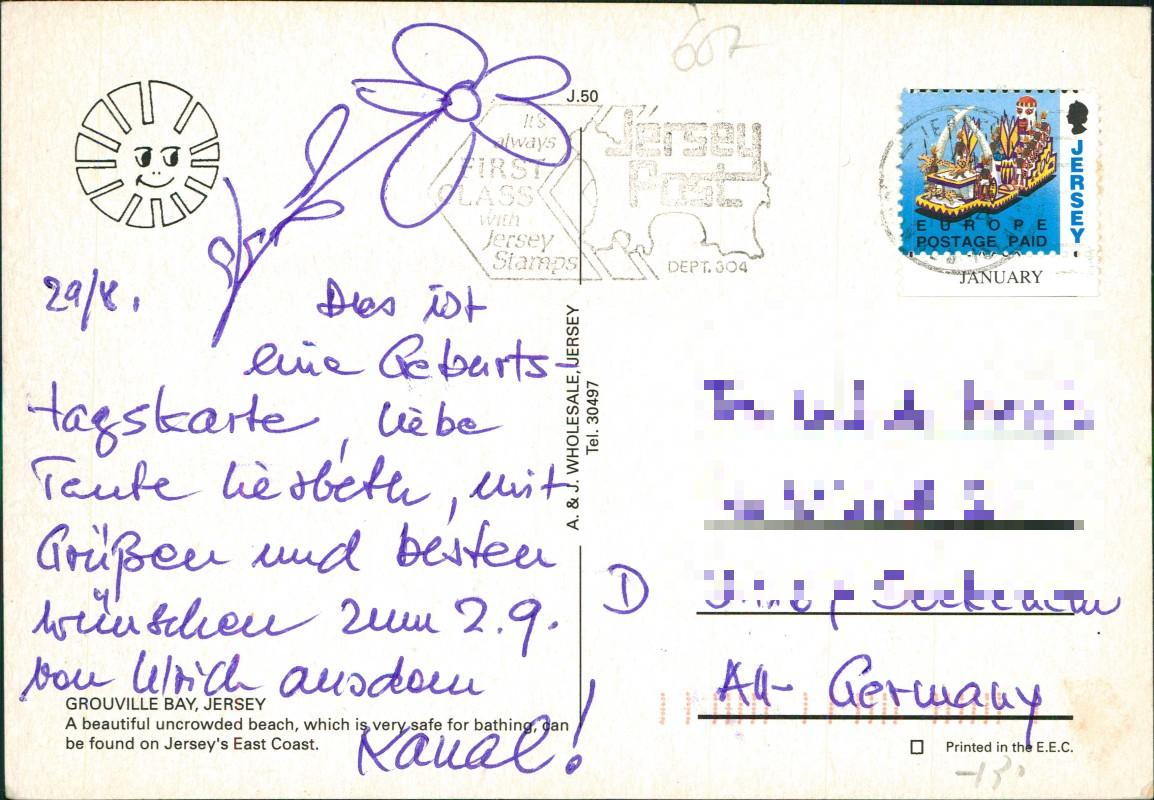 J.50
It's
always
FIRST
CLASS
with
Jersey
Stamps
Jersey
Post
DEPT. 304
JERSEY
EUROPE
POSTAGE PAID
JANUARY
29/8.
Das ist
eine Geburts-
tagskarte, liebe
Tante Liesbeth, mit
Grüßen und besten
Wünschen zum 2.9.
von Ulrich aus dem
Kanal!
GROUVILLE BAY, JERSEY
A beautiful uncrowded beach, which is very safe for bathing, can
be found on Jersey's East Coast.
A. & J. WHOLESALE, JERSEY
Tel. 30497
D
Germany
Printed in the E.E.C.